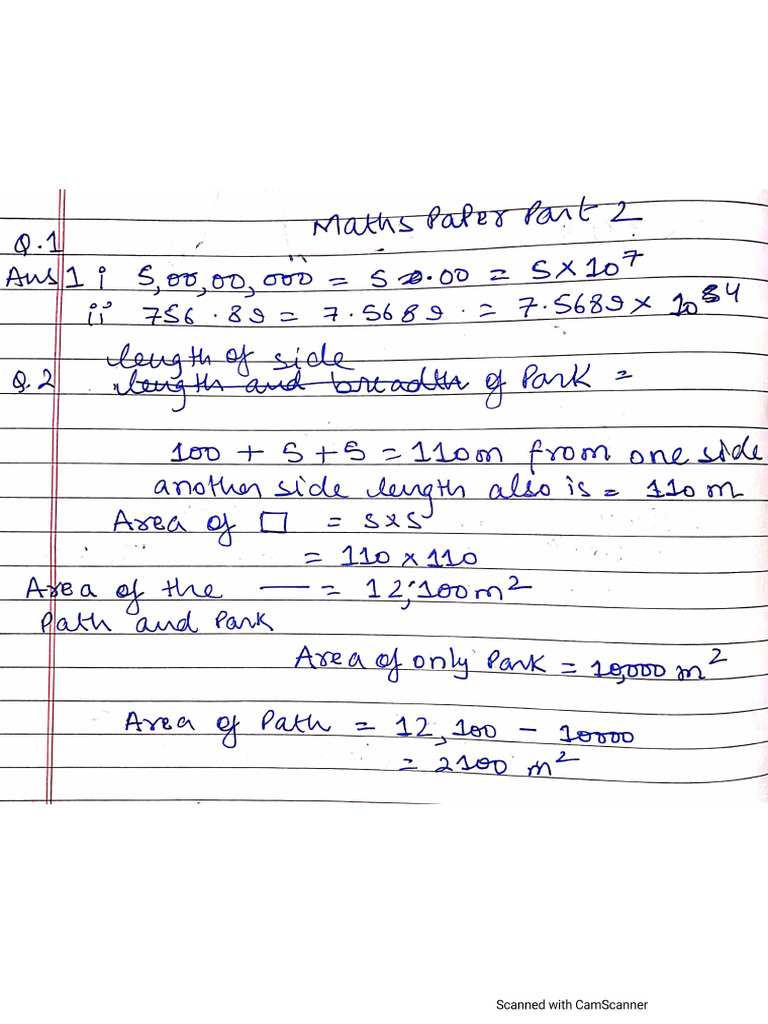 Maths Paper Part 2
Q.1
Ans 1 i 5,00,00,000 = 5 0.00 = 5 × 10⁷
ii 756.89 = 7.5689 = 7.5689 × 10⁴
length of side
Q.2 length and breadth of Park =
100 + 5 + 5 = 110m from one side
another side length also is = 110 m
Area of □ = s×s
= 110 × 110
Area of the — = 12,100m²
Path and Park
Area of only Park = 10,000 m²
Area of Path = 12,100 - 10000
= 2100 m²
Scanned with CamScanner